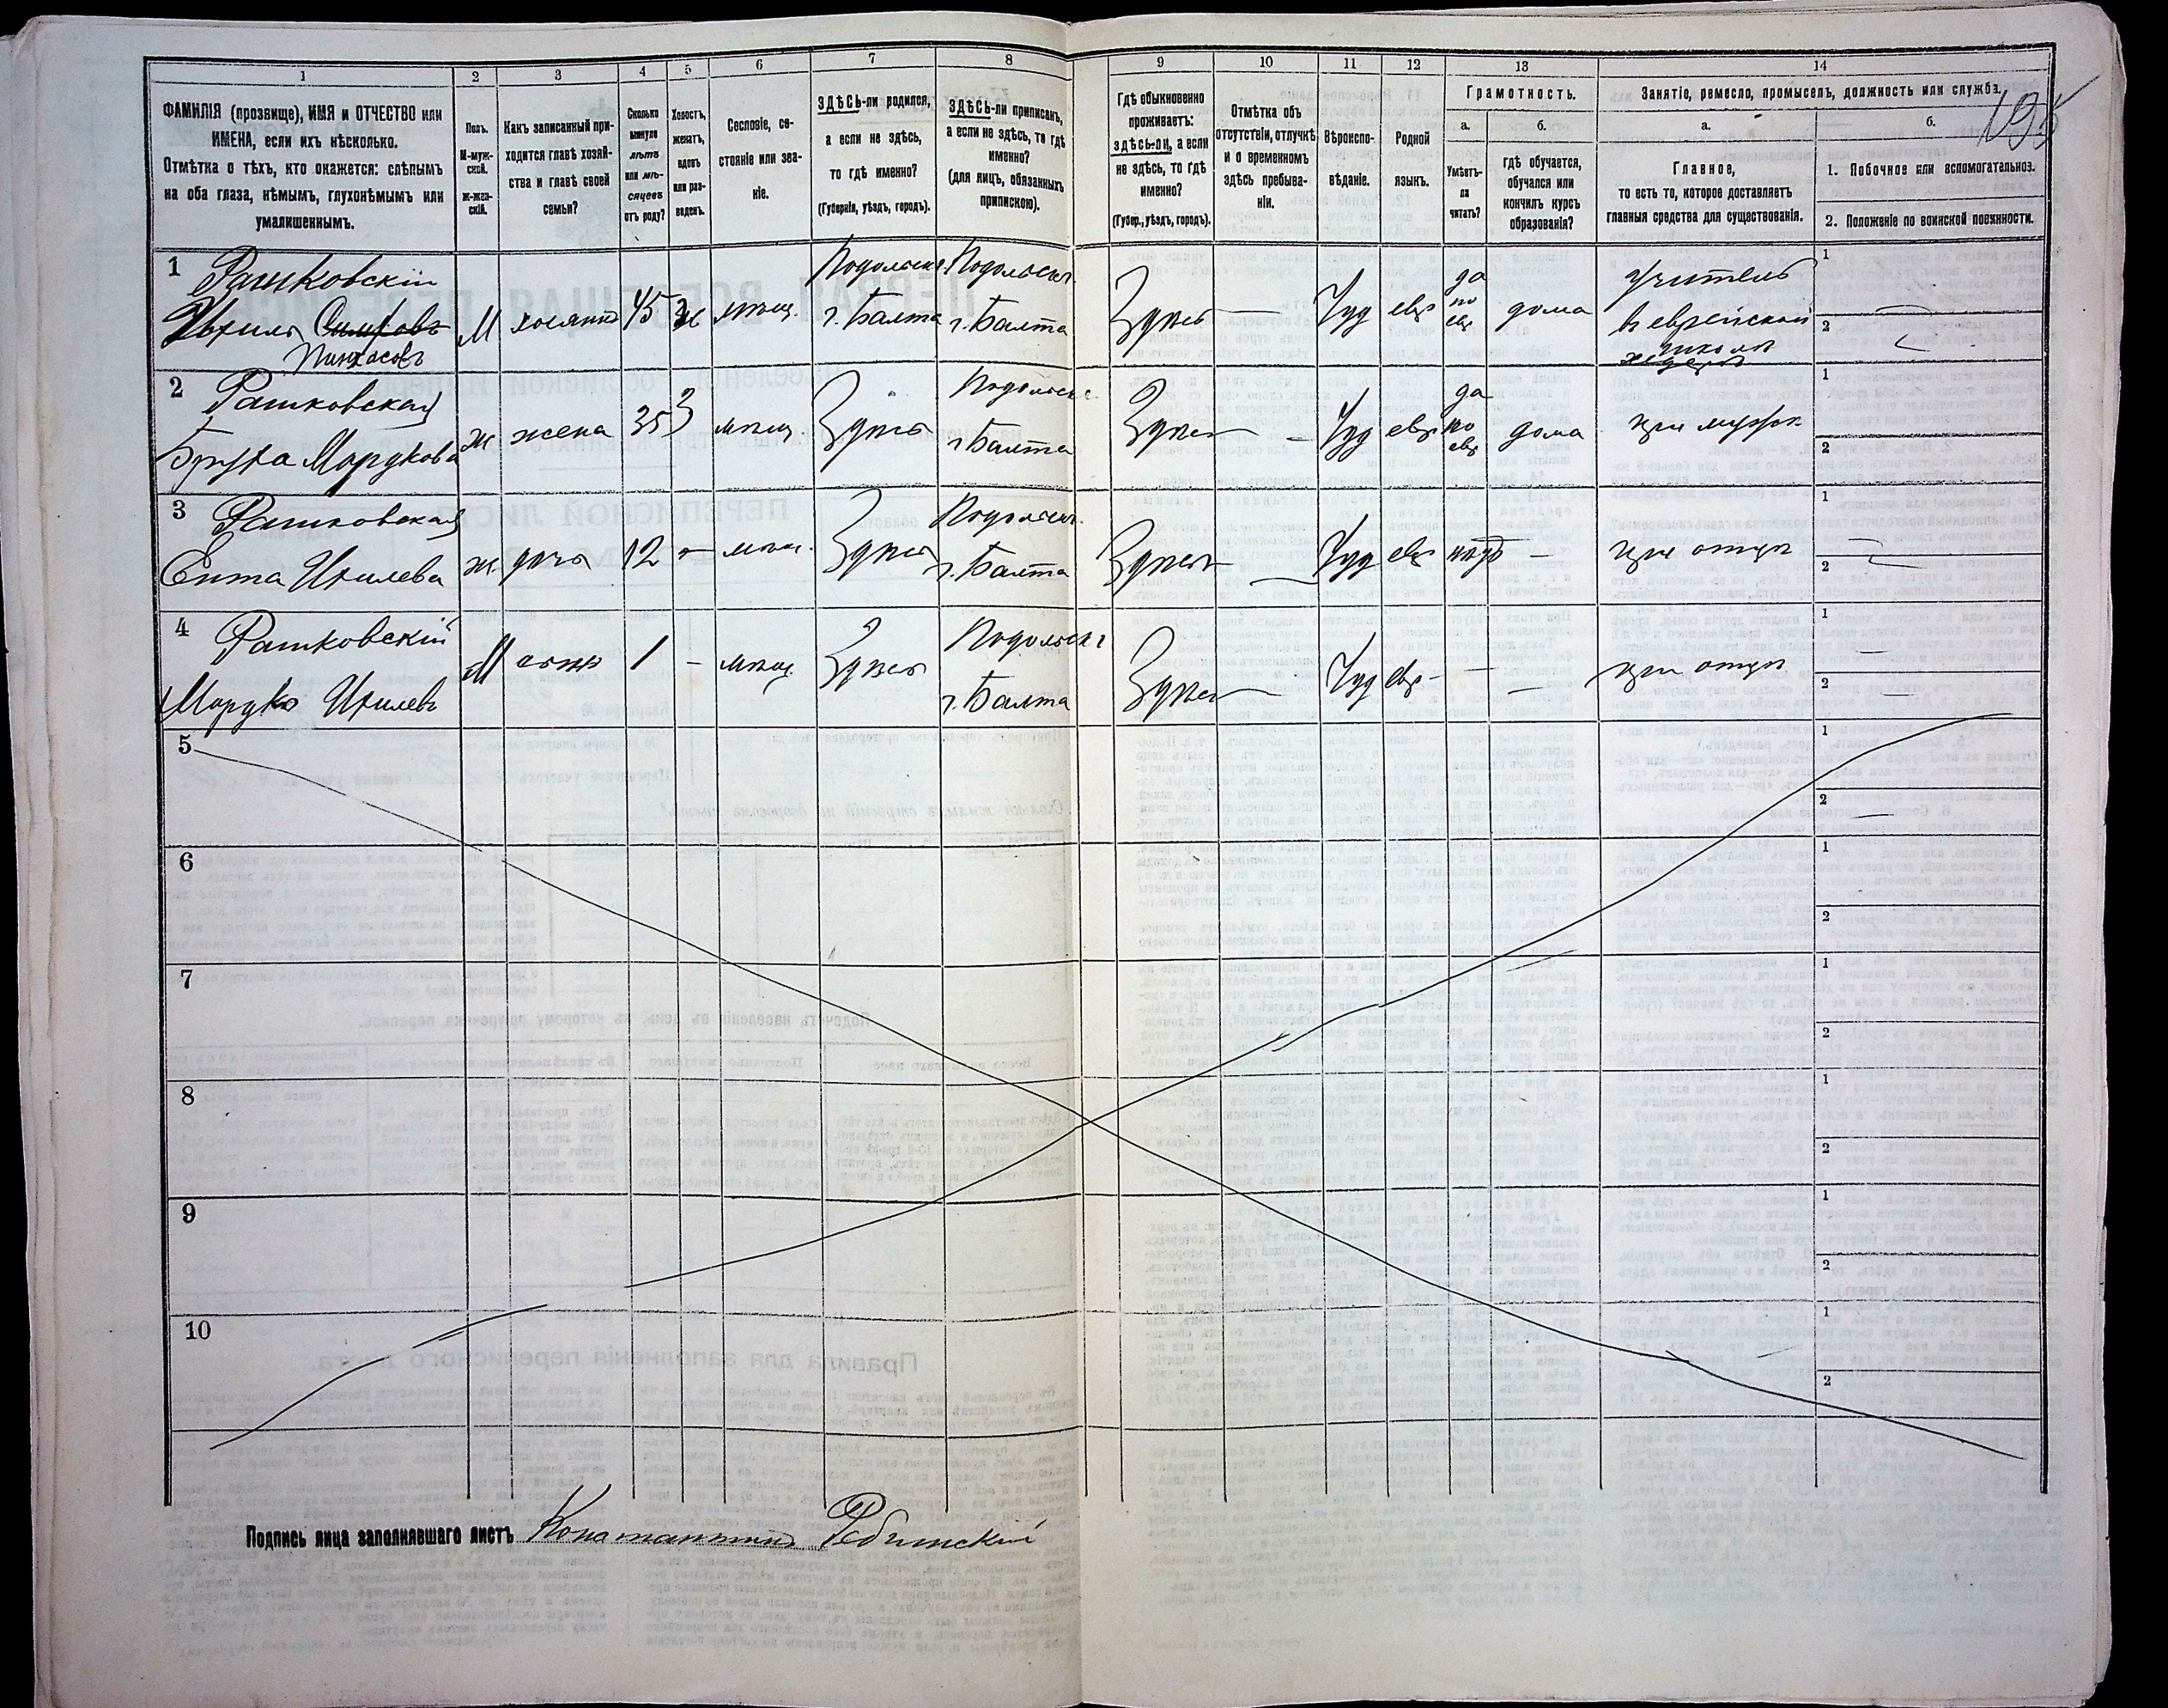 1 2 3 4 5 6 7 8 9 10 11 12 13 14
ФАМИЛІЯ (прозвище), ИМЯ и ОТЧЕСТВО или
ИМЕНА, если ихъ нѣсколько.
Отмѣтка о тѣхъ, кто окажется: слѣпымъ
на оба глаза, нѣмымъ, глухонѣмымъ или
умалишеннымъ.
Полъ.
М-муж-
ской.
Ж-жен-
скій.
Какъ записанный при-
ходится главѣ хозяй-
ства и главѣ своей
семьи?
Сколько
минуло
лѣтъ
или мѣ-
сяцевъ
отъ роду?
Холостъ,
женатъ,
вдовъ
или раз-
веденъ.
Сословіе, со-
стояніе или зва-
ніе.
ЗДѢСЬ-ли родился,
а если не здѣсь,
то гдѣ именно?
(Губернія, уѣздъ, городъ).
ЗДѢСЬ-ли приписанъ,
а если не здѣсь, то гдѣ
именно?
(для лицъ, обязанныхъ
припискою).
Гдѣ обыкновенно
проживаетъ:
здѣсь-ли, а если
не здѣсь, то гдѣ
именно?
(Губер., уѣздъ, городъ).
Отмѣтка объ
отсутствіи, отлучкѣ
и о временномъ
здѣсь пребыва-
ніи.
Вѣроиспо-
вѣданіе.
Родной
языкъ.
Грамотность.
а.
Умѣетъ-
ли
читать?
б.
гдѣ обучается,
обучался или
кончилъ курсъ
образованія?
Занятіе, ремесло, промыселъ, должность или служба.
а.
Главное,
то есть то, которое доставляетъ
главныя средства для существованія.
б.
1. Побочное или вспомогательное.
2. Положеніе по воинской повинности.
1 Рашковскій
Ихиль
Пинхасовъ
М хозяинъ 45 ж мѣщ.
Подольск.
г. Балта
Подольск.
г. Балта
Здѣсь — Іуд евр
да
по
евр
дома
учитель
въ еврейской
школѣ
1
2
2 Рашковская
Брухa Мордкова
ж жена 35 З мѣщ. Здѣсь
Подольск
г. Балта
Здѣсь — Іуд евр
да
по
евр
дома при мужѣ
1
2
3 Рашковская
Ента Ихилева
ж дочь 12 — мѣщ. Здѣсь
Подольск.
г. Балта
Здѣсь — Іуд евр — при отцѣ
1
2
4 Рашковскій
Мордко Ихилевъ
М сынъ 1 — мѣщ. Здѣсь
Подольск
г. Балта
Здѣсь — Іуд евр — — при отцѣ
1
2
5
1
2
6
1
2
7
1
2
8
1
2
9
1
2
10
1
2
Подпись лица заполнявшаго листъ Константинъ